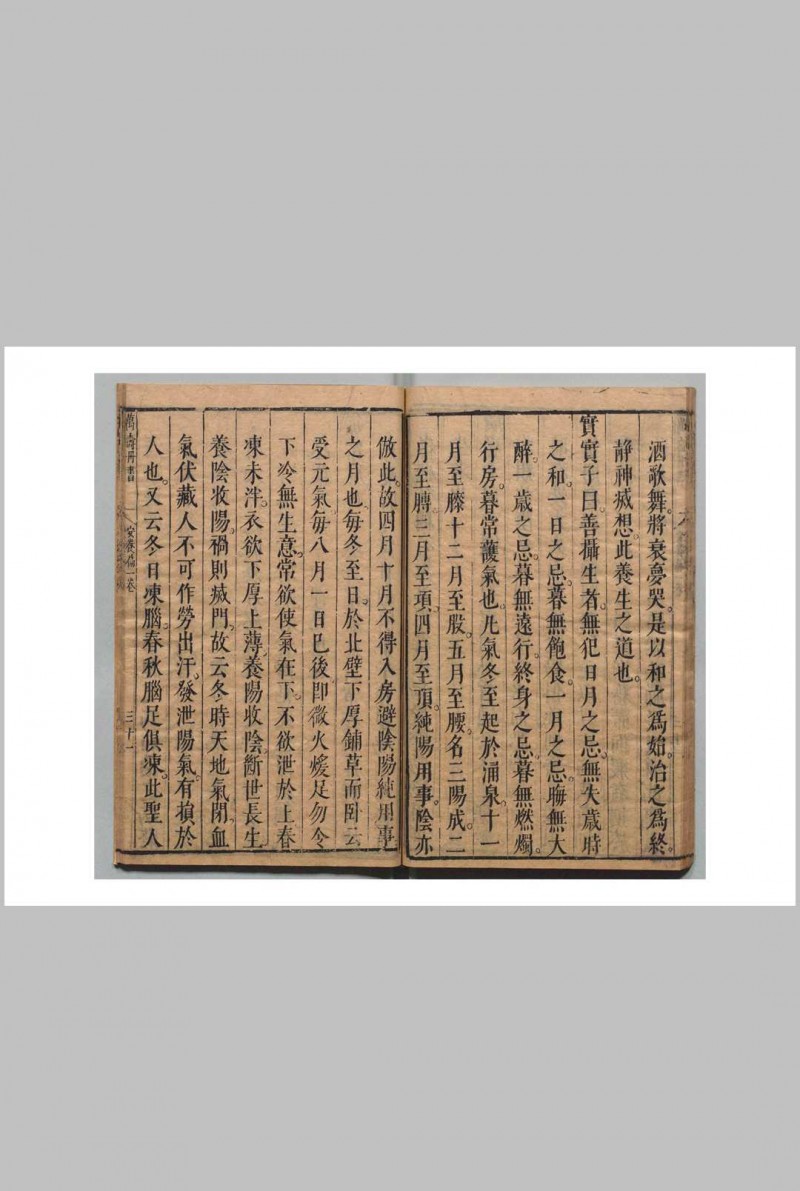 酒歌舞。將衰夢哭。是以和之爲始。治之爲終。
靜神滅想。此養生之道也。
實實子曰。善攝生者。無犯日月之忌。無失歲時
之和。一日之忌。暮無飽食。一月之忌。晦無大
醉。一歲之忌。暮無遠行。終身之忌。暮無燃燭。
行房。暮常護氣也。凡氣冬至起於涌泉。十一
月至膝。十二月至股。五月至腰。名三陽成。二
月至膊。三月至項。四月至頂。純陽用事。陰亦
倣此。故四月十月不得入房。避陰陽純用事
之月也。每冬至日。於北壁下厚鋪草而臥。云
受元氣。每八月一日巳後。即微火煖足。勿令
下冷無生意。常欲使氣在下。不欲泄於上。春
凍未泮。衣欲下厚上薄。養陽收陰。繼世長生。
養陰收陽。禍則滅門。故云冬時天地氣閉。血
氣伏藏。人不可作勞出汗。發泄陽氣。有損於
人也。又云冬日凍腦。春秋腦足俱凍。此聖人
萬壽丹書
安養篇一卷
三十一